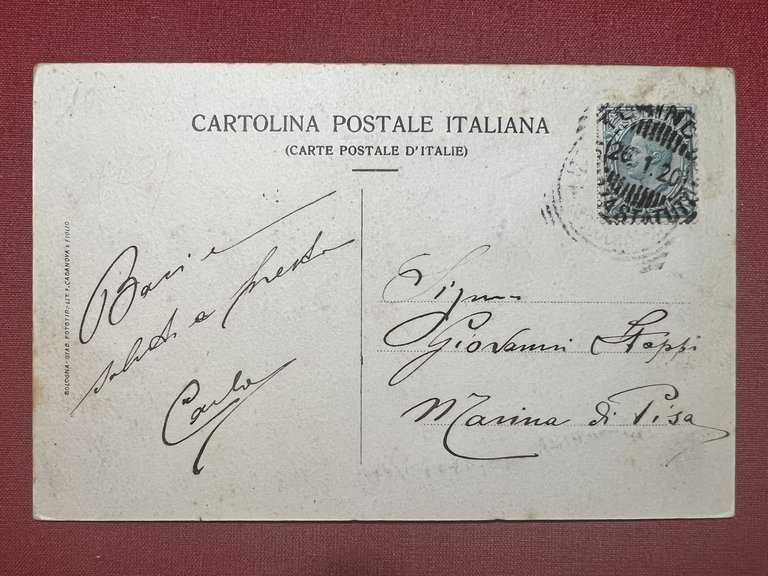 CARTOLINA POSTALE ITALIANA
(CARTE POSTALE D'ITALIE)
TORINO
26.1.20
STATUTO
BOLOGNA-STAB. FOTOTIP.-LIT. F. CASANOVA e FIGLIO
Baci e
saluti a presto
Carlo
Signor
Giovanni
Marina di Pisa